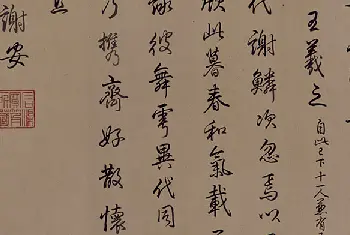 王羲之 自此已下十一人兼有
代謝鱗次忽焉以
欣此暮春和氣載
詠彼舞雩異代同
乃攜齊好散懷
謝安